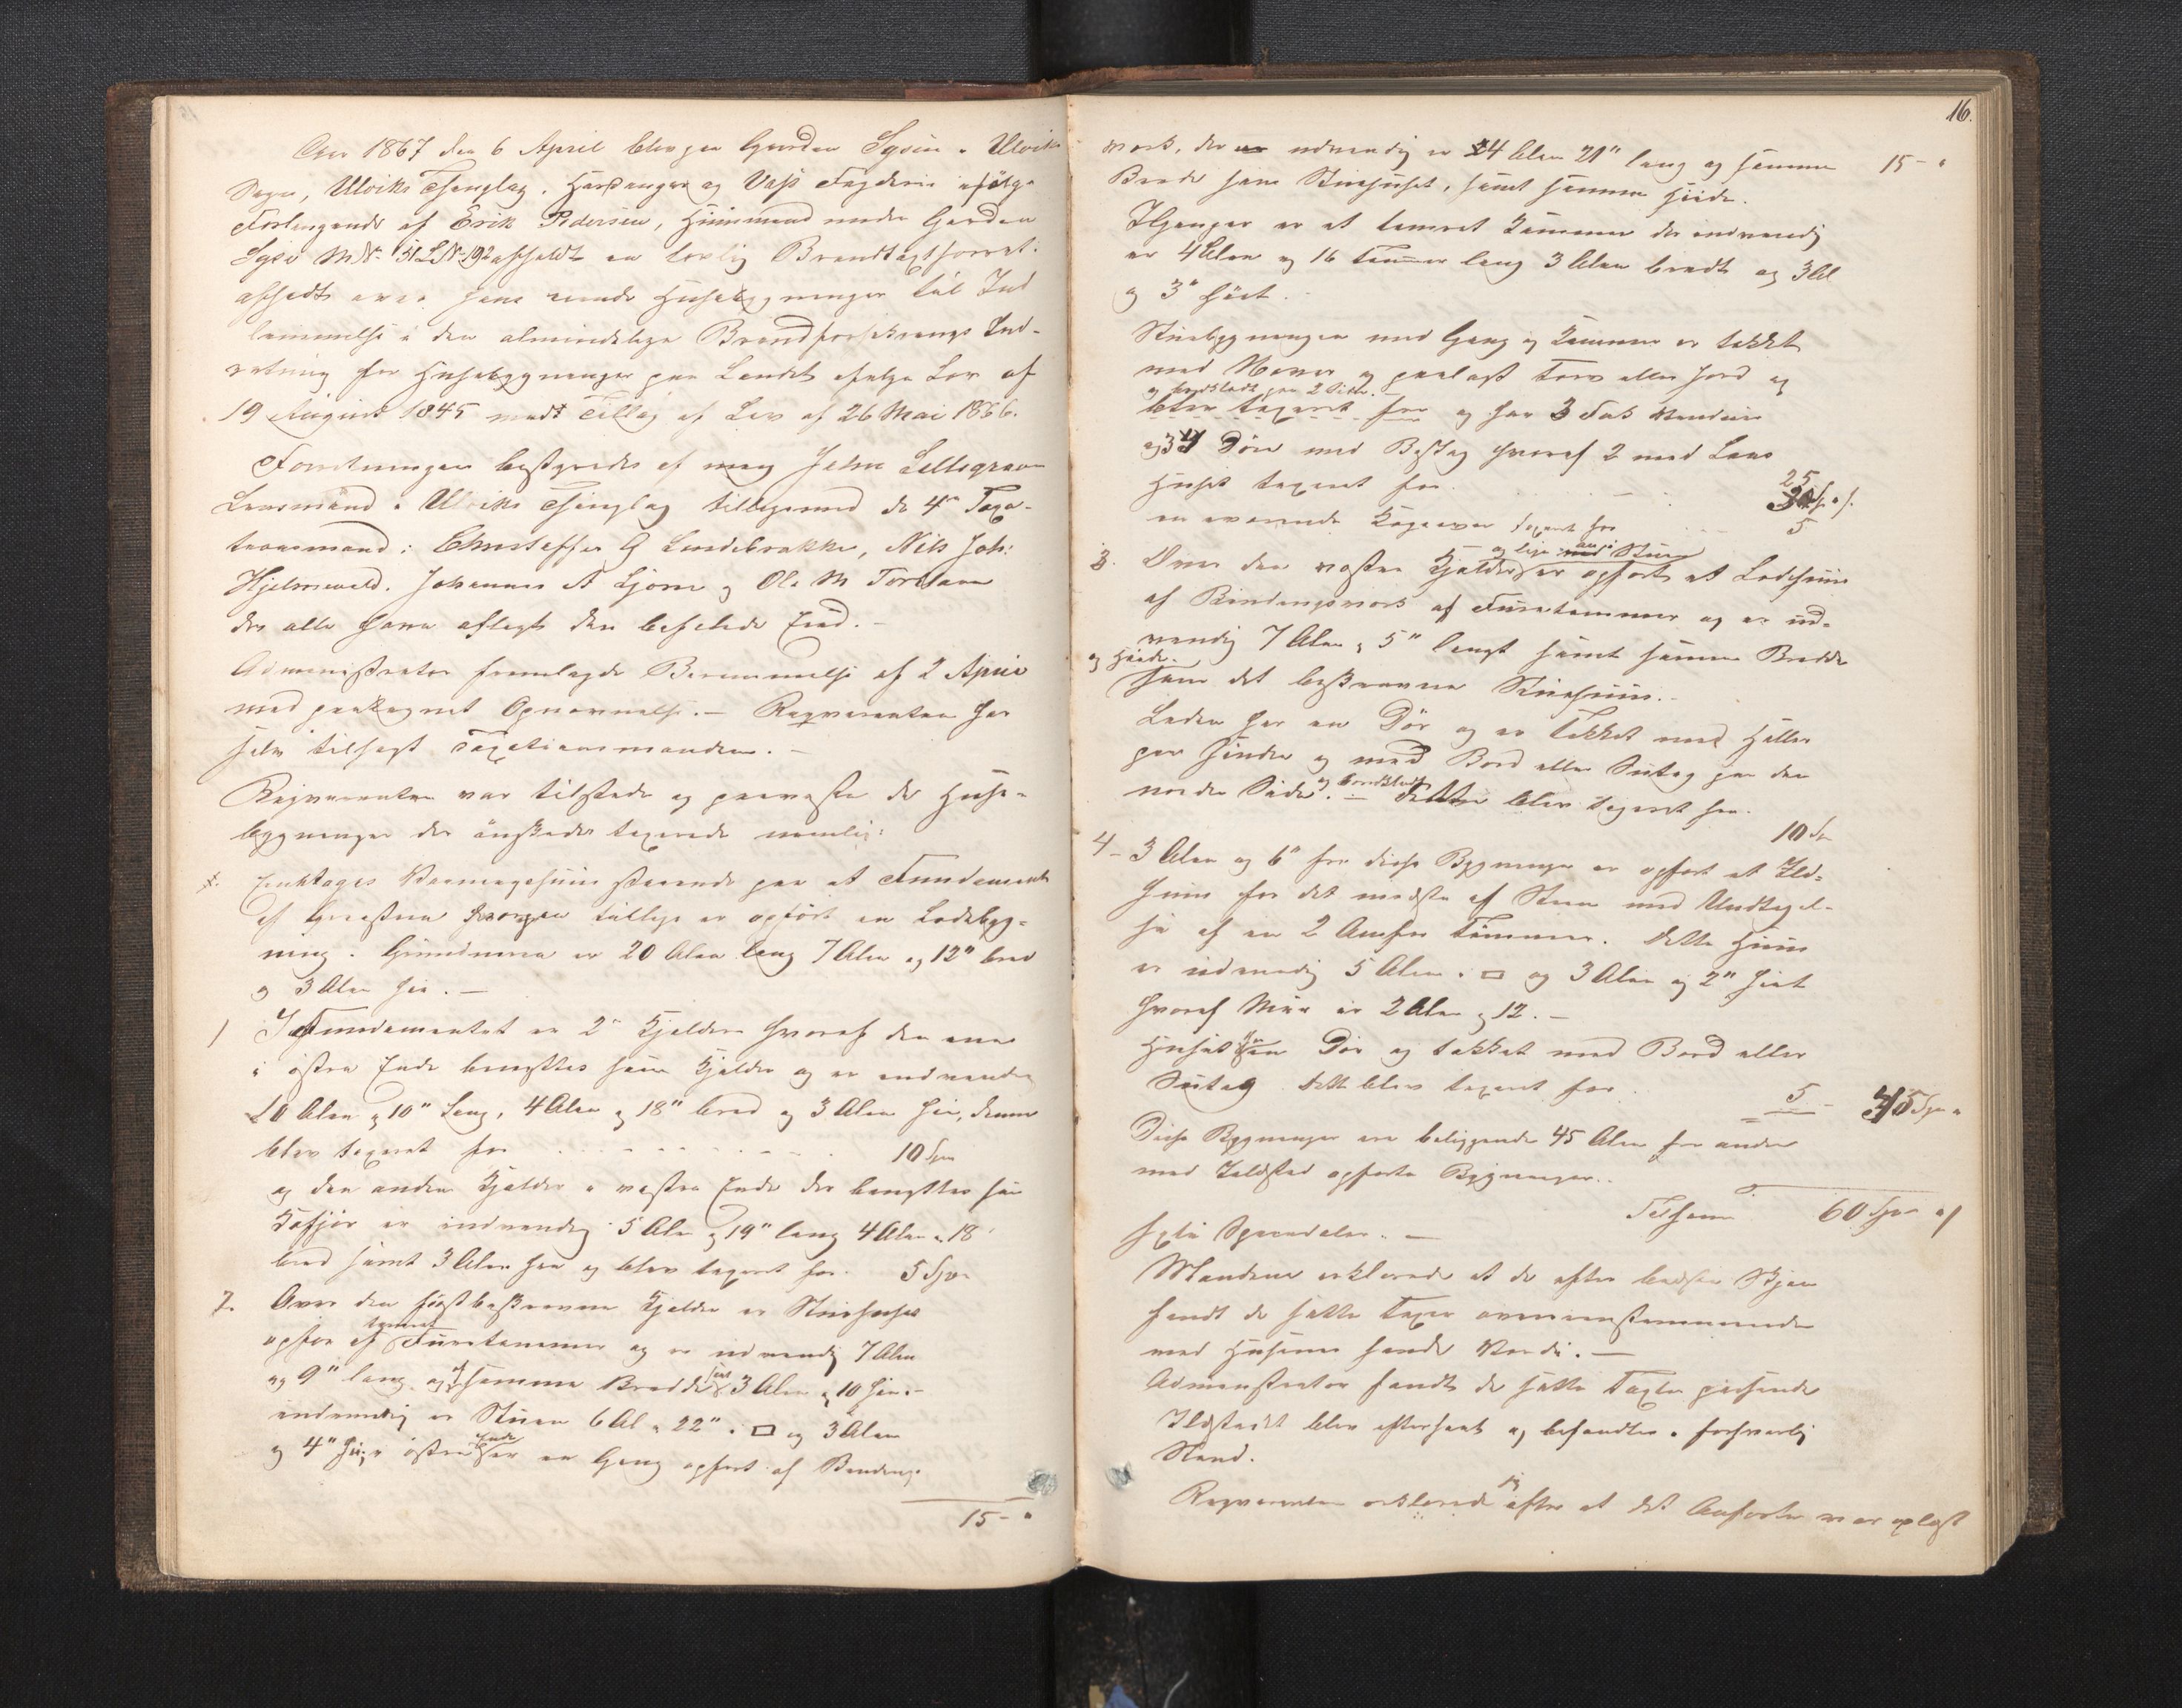 Aar 1867 den 6 April blev paa Gaarden Sysen i Ulviks
Sogn, Ulviks Thinglag, Hardanger og Voss Fogderie ifølge
Forlangende af Erik Pedersen, Huusmand under Gaarden
Syse M No 51 L No 192 afholdt en lovlig Brandtaxtforret-
over hans eiende Husebygninger til Ind
lemmelse i den almindelige Brandforsikrings Ind-
retning for Husebygninger paa Landet ifølge Lov af
19 August 1845 med Tillæg af Lov af 26 Mai 1866.
Forretningen bestyredes af mig John Lillegraven
Lensmand i Ulviks Thinglag tilligemed de 4re Taxa-
tionsmænd: Christoffer G Lindebrække, Nils Joh:
Hjelmevold, Johannes A Ljone og Ole M Torblaa
der alle have aflagt den befalede Eed.-
Administrator fremlagde Berammelse af 2 April
med paategnet Opnævnelse. - Reqvirenten har
selv tilsagt Taxationsmændene. -
Reqvirenten var tilstede og paaviste de Huse-
bygninger der ønskedes taxerede nemlig:
1. Enktages Vaaningshuus staaende paa et Fundament
af Graasteen hvorpaa tillige er opført en Ladebyg-
ning. Grundmuren er 20 Alen lang 7 Alen og 12" bred
og 3 Alen høi. -
1 I Fundamentet er 2de Kjeldere hvoraf den ene
i østre Ende benyttes som Kjelder og er indvendig
10 Alen og 10" Lang, 4 Alen og 18" bred og 3 Alen høi, denne
blev taxeret for . . . . . . . . . . 10 Spd
og den anden Kjelder i vestre Ende der benyttes som
Kofjøs er indvendig 5 Alen og 19" lang 4 Alen og 18"
bred samt 3 Alen høi og blev taxeret for. 5 Spd
2. Over den førstbeskrevne Kjelder er Stuehuset
tømret
opført af Furetømmer og er udvendig 7 Alen
og 9" lang og af samme Bredde samt 3 Alen og 10 høi.-
indvendig er Stuen 6 Al og 22" i □ og 3 Alen
Ende
og 4" høi, i østre er en Gang opført af Bindings-
15 - "
16.
værk, der er udvendig er 4 Alen 21" lang og samme 15 - "
Brede som Stuehuset, samt samme Høide.
I Gangen er et tømret Kammer der indvendig
er 4 Alen og 16 Tommer lang 3 Alen bredt og 3 Al
og 3" høit.
Stuebygningen med Gang og Kammer er tækket
med Næver og paalagt Torv eller Jord og
og bordklædt paa 2 Sider.
blev taxeret for og har 3 Fag Vinduer
og 4 Døre med Beslag hvoraf 2 med Laas
Huset taxeret for . . . 25
en værende Kogeovn taxeret for . . . 5
og lige an i Stuen
3. Over den vestre Kjelder er opført et Ladehuus
af Bindingsværk af Furetømmer og er ud-
vendig 7 Alen og 5" langt samt samme Bredde
og Høide
som det beskrevne Stuehuus.-
Laden har en Dør og er tækket med Heller
paa Søndre og med Bord eller Sutag paa den
og bordklædt
nordre Side. - Dette blev taxeret for.
10 Spd
4 - 3 Alen og 6" fra disse Bygninger er opført et Ild-
huus for det meste af Steen med Undtagel-
se af en 2 Omfar Tømmer. Dette Huus
er udvendig 5 Alen i □ og 3 Alen og 2" høit
hvoraf Muur er 2 Alen og 12. -
Huset har en Dør og tækket med Bord eller
Sutag Dette blev taxeret for . 5 45 Spd "
Disse Bygninger ere beliggende 45 Alen fra andre
med Ildsted opførte Bygninger..
Tilsam̄en 60 Spd "
Sexti Speciedaler. -
Mændene erklærede at de efter bedste Skjøn
fandt de satte Taxter overeensstemmende
med Husenes sande Værdi. -
Administrator fandt de satte Taxter passende
Ildstedet blev efterseet og befandtes i forsvarlig
Stand.
sig
Reqvirenten erklærede efter at det Anførte var oplæst